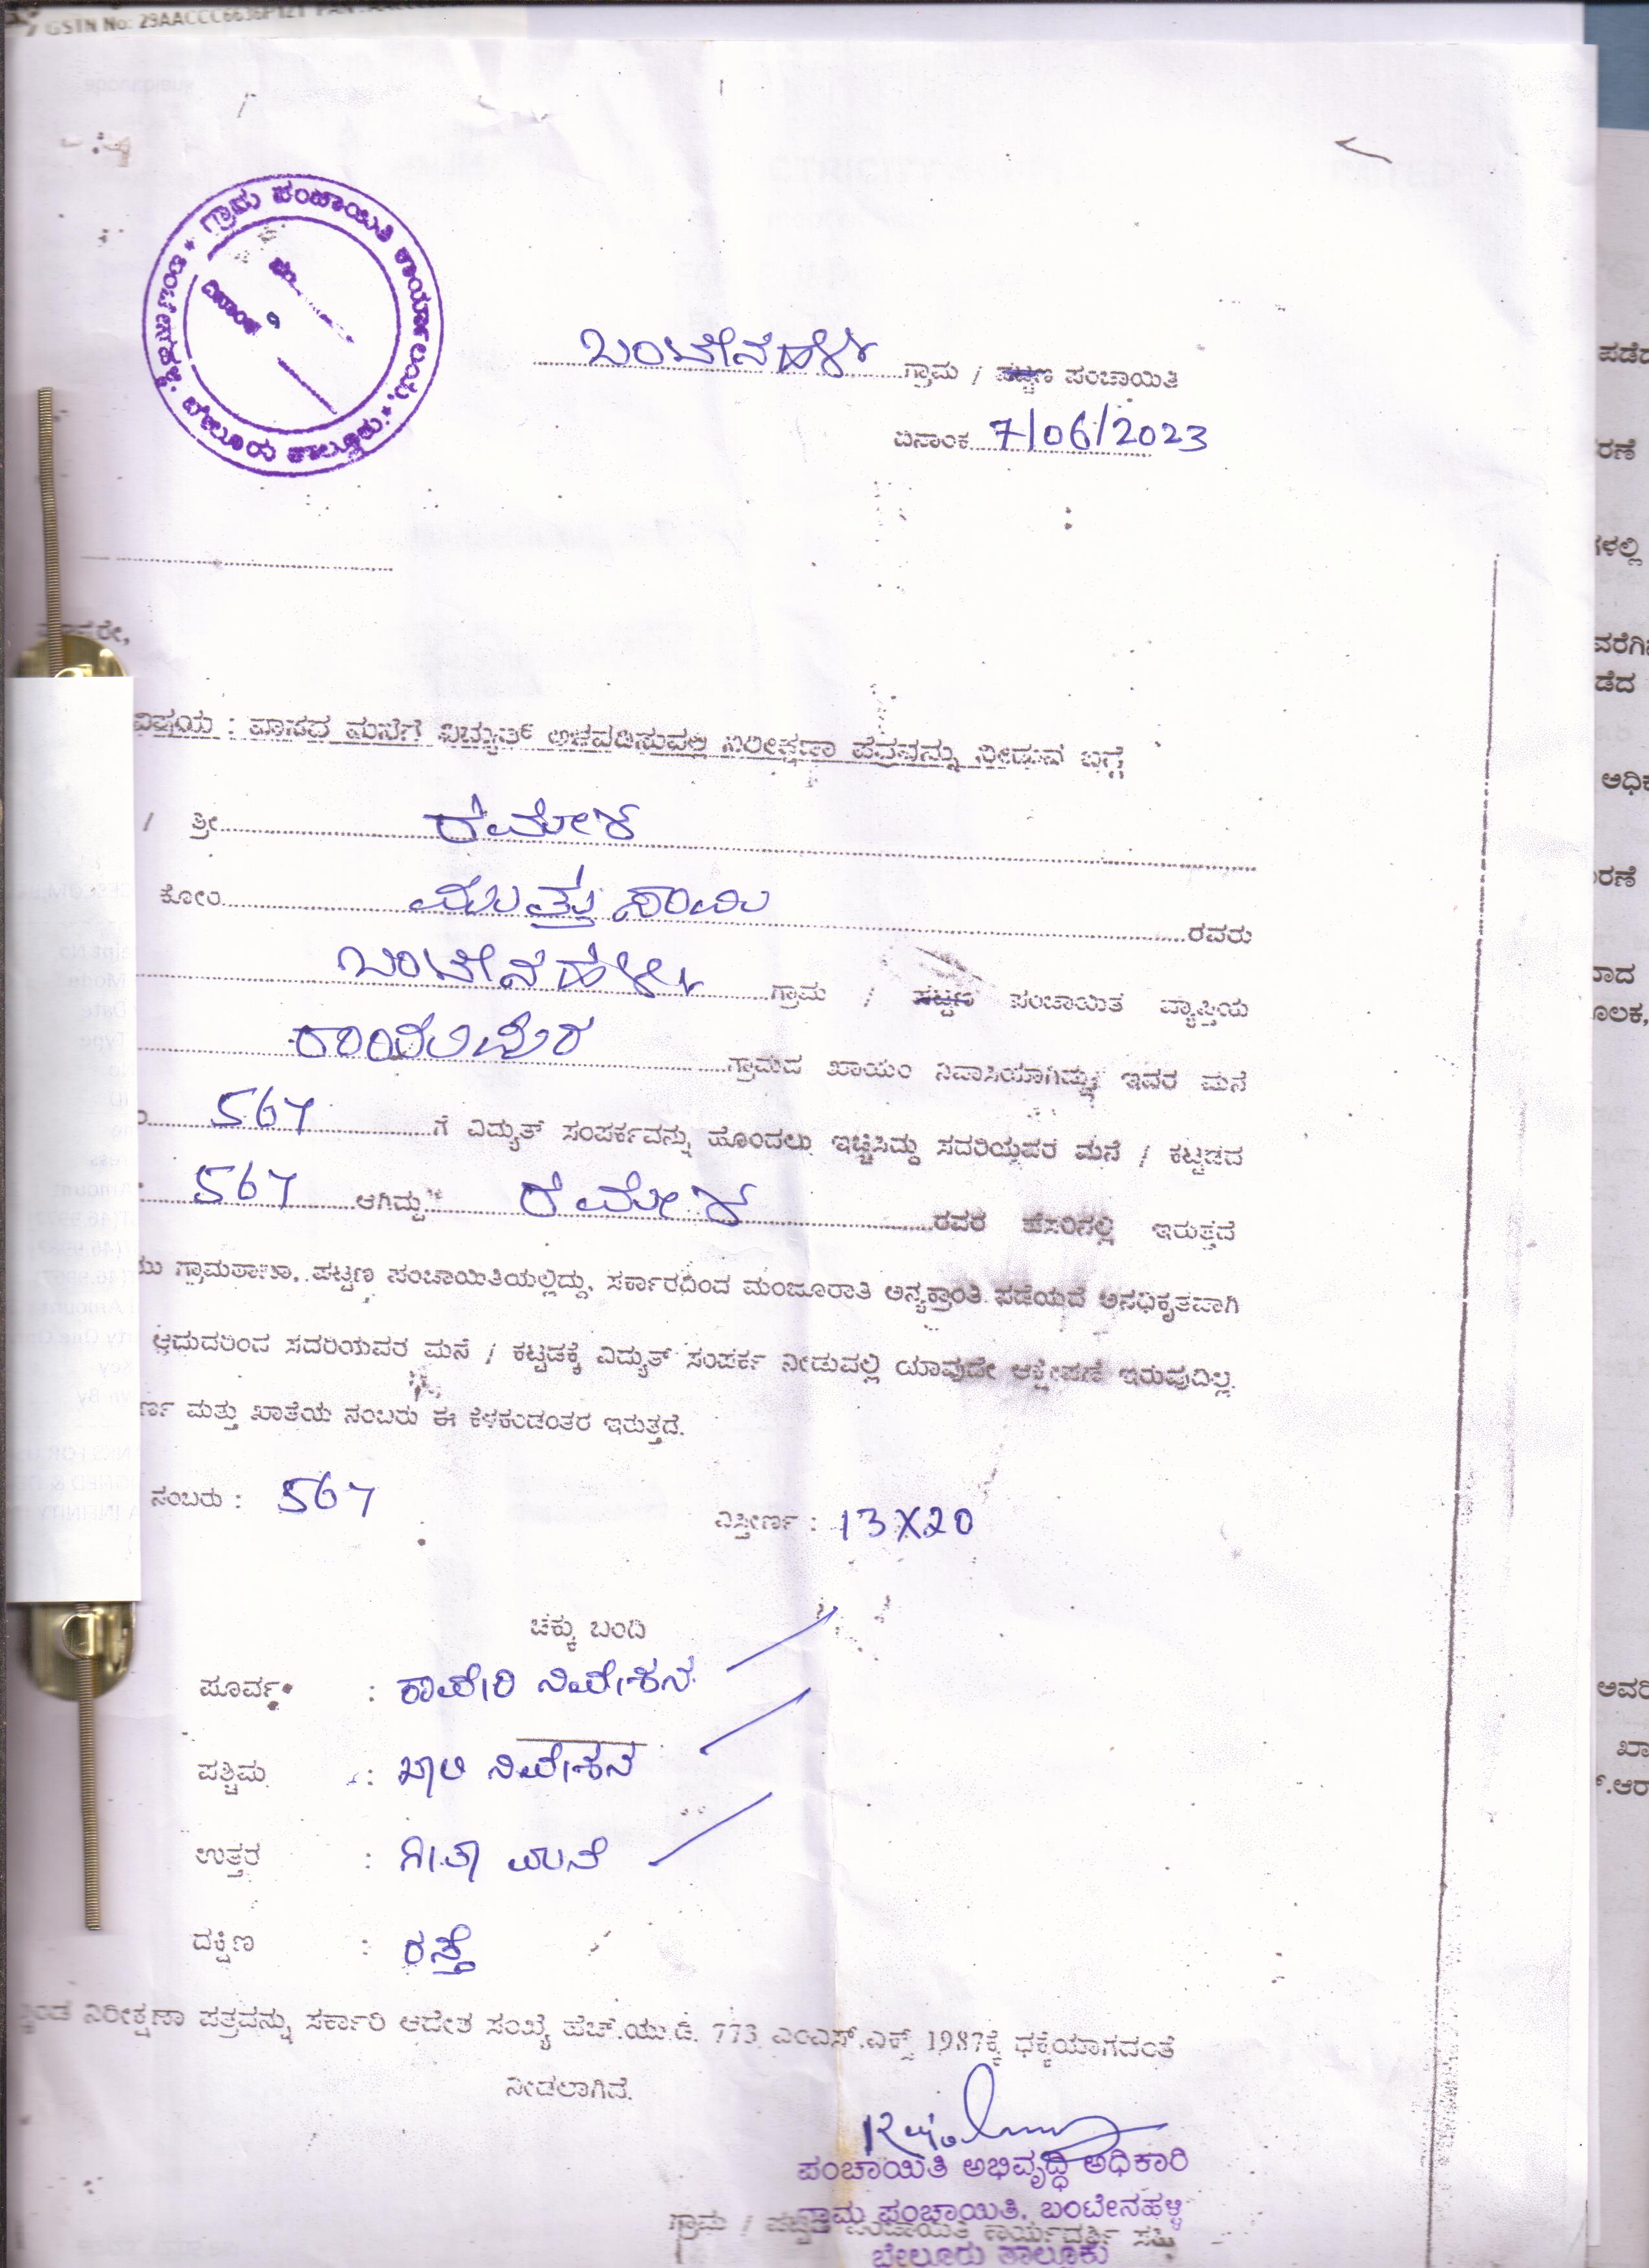 GSTN No: 29AACCC6636P1ZT PAN
ಗ್ರಾಮ ಪಂಚಾಯಿತಿ ಕಾರ್ಯಾಲಯ
ದಿನಾಂಕ
ಬಂಟೇನಹಳ್ಳಿ ಗ್ರಾಮ / ಪಟ್ಟಣ ಪಂಚಾಯಿತಿ
ದಿನಾಂಕ 7/06/2023
ವಿಷಯ : ವಾಸದ ಮನೆಗೆ ವಿದ್ಯುತ್ ಅಳವಡಿಸುವಲ್ಲಿ ನಿರೀಕ್ಷಣಾ ಪತ್ರವನ್ನು ನೀಡುವ ಬಗ್ಗೆ
/ ಶ್ರೀ ರಮೇಶ
ಕೋಂ ಮುತ್ತು ಸಾಮಿ ರವರು
ಬಂಟೇನಹಳ್ಳಿ ಗ್ರಾಮ / ಪಟ್ಟಣ ಪಂಚಾಯಿತಿ ವ್ಯಾಪ್ತಿಯ
ಗ್ರಾಮದ ಖಾಯಂ ನಿವಾಸಿಯಾಗಿದ್ದು ಇವರ ಮನೆ
567 ಗೆ ವಿದ್ಯುತ್ ಸಂಪರ್ಕವನ್ನು ಹೊಂದಲು ಇಚ್ಚಿಸಿದ್ದು ಸದರಿಯವರ ಮನೆ / ಕಟ್ಟಡದ
567 ಆಗಿದ್ದು ರಮೇಶ ರವರ ಹೆಸರಿನಲ್ಲಿ ಇರುತ್ತದೆ
ಯು ಗ್ರಾಮಠಾಣಾ, ಪಟ್ಟಣ ಪಂಚಾಯಿತಿಯಲ್ಲಿದ್ದು, ಸರ್ಕಾರದಿಂದ ಮಂಜೂರಾತಿ ಅನ್ಯಕ್ರಾಂತಿ ಪಡೆಯದೆ ಅನಧಿಕೃತವಾಗಿ
ಆದುದರಿಂದ ಸದರಿಯವರ ಮನೆ / ಕಟ್ಟಡಕ್ಕೆ ವಿದ್ಯುತ್ ಸಂಪರ್ಕ ನೀಡುವಲ್ಲಿ ಯಾವುದೇ ಆಕ್ಷೇಪಣೆ ಇರುವುದಿಲ್ಲ.
ರ್ಣ ಮತ್ತು ಖಾತೆಯ ನಂಬರು ಈ ಕೆಳಕಂಡಂತರ ಇರುತ್ತದೆ.
ನಂಬರು : 567
ವಿಸ್ತೀರ್ಣ : 13X20
ಚಕ್ಕು ಬಂದಿ
ಪೂರ್ವ : ಕಾವೇರಿ ನಿವೇಶನ
ಪಶ್ಚಿಮ : ಖಾಲಿ ನಿವೇಶನ
ಉತ್ತರ : ಗೀತಾ ಮನೆ
ದಕ್ಷಿಣ : ರಸ್ತೆ
ನಿರೀಕ್ಷಣಾ ಪತ್ರವನ್ನು ಸರ್ಕಾರಿ ಆದೇಶ ಸಂಖ್ಯೆ ಹೆಚ್.ಯು.ಡಿ. 773 ಎಂಎಸ್.ಎಕ್ಸ್ 1987ಕ್ಕೆ ಧಕ್ಕೆಯಾಗದಂತೆ
ನೀಡಲಾಗಿದೆ.
ಪಂಚಾಯಿತಿ ಅಭಿವೃದ್ಧಿ ಅಧಿಕಾರಿ
ಗ್ರಾಮ ಪಂಚಾಯಿತಿ, ಬಂಟೇನಹಳ್ಳಿ
ಗ್ರಾಮ / ಪಟ್ಟಣ ಪಂಚಾಯಿತಿ ಕಾರ್ಯದರ್ಶಿ ಸಹಿ
ಬೇಲೂರು ತಾಲೂಕು